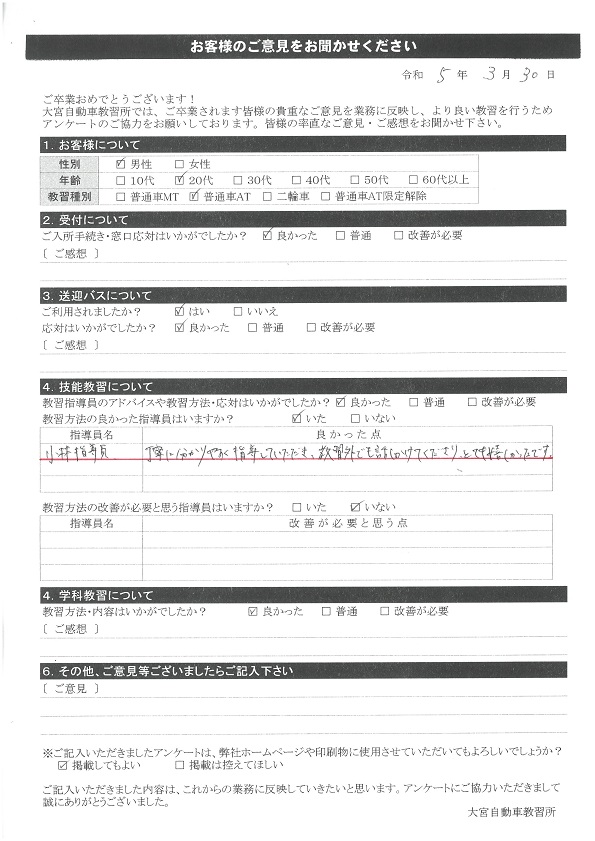 お客様のご意見をお聞かせください
令和 5 年 3 月 30 日
ご卒業おめでとうございます！
大宮自動車教習所では、ご卒業されます皆様の貴重なご意見を業務に反映し、より良い教習を行うため
アンケートのご協力をお願いしております。皆様の率直なご意見・ご感想をお聞かせ下さい。
1. お客様について
性別 ☑ 男性 □ 女性
年齢 □ 10代 ☑ 20代 □ 30代 □ 40代 □ 50代 □ 60代以上
教習種別 □ 普通車MT ☑ 普通車AT □ 二輪車 □ 普通車AT限定解除
2. 受付について
ご入所手続き・窓口応対はいかがでしたか？ ☑ 良かった □ 普通 □ 改善が必要
〔 ご感想 〕
3. 送迎バスについて
ご利用されましたか？ ☑ はい □ いいえ
応対はいかがでしたか？ ☑ 良かった □ 普通 □ 改善が必要
〔 ご感想 〕
4. 技能教習について
教習指導員のアドバイスや教習方法・応対はいかがでしたか？ ☑ 良かった □ 普通 □ 改善が必要
教習方法の良かった指導員はいますか？ ☑ いた □ いない
指導員名 良かった点
小林指導員 丁寧に分かりやすく指導していただき、教習外でも話しかけてくださり、とても嬉しかったです。
教習方法の改善が必要と思う指導員はいますか？ □ いた ☑ いない
指導員名 改善が必要と思う点
4. 学科教習について
教習方法・内容はいかがでしたか？ ☑ 良かった □ 普通 □ 改善が必要
〔 ご感想 〕
6. その他、ご意見等ございましたらご記入下さい
〔 ご意見 〕
※ご記入いただきましたアンケートは、弊社ホームページや印刷物に使用させていただいてもよろしいでしょうか？
☑ 掲載してもよい □ 掲載は控えてほしい
ご記入いただきました内容は、これからの業務に反映していきたいと思います。アンケートにご協力いただきまして
誠にありがとうございました。
大宮自動車教習所